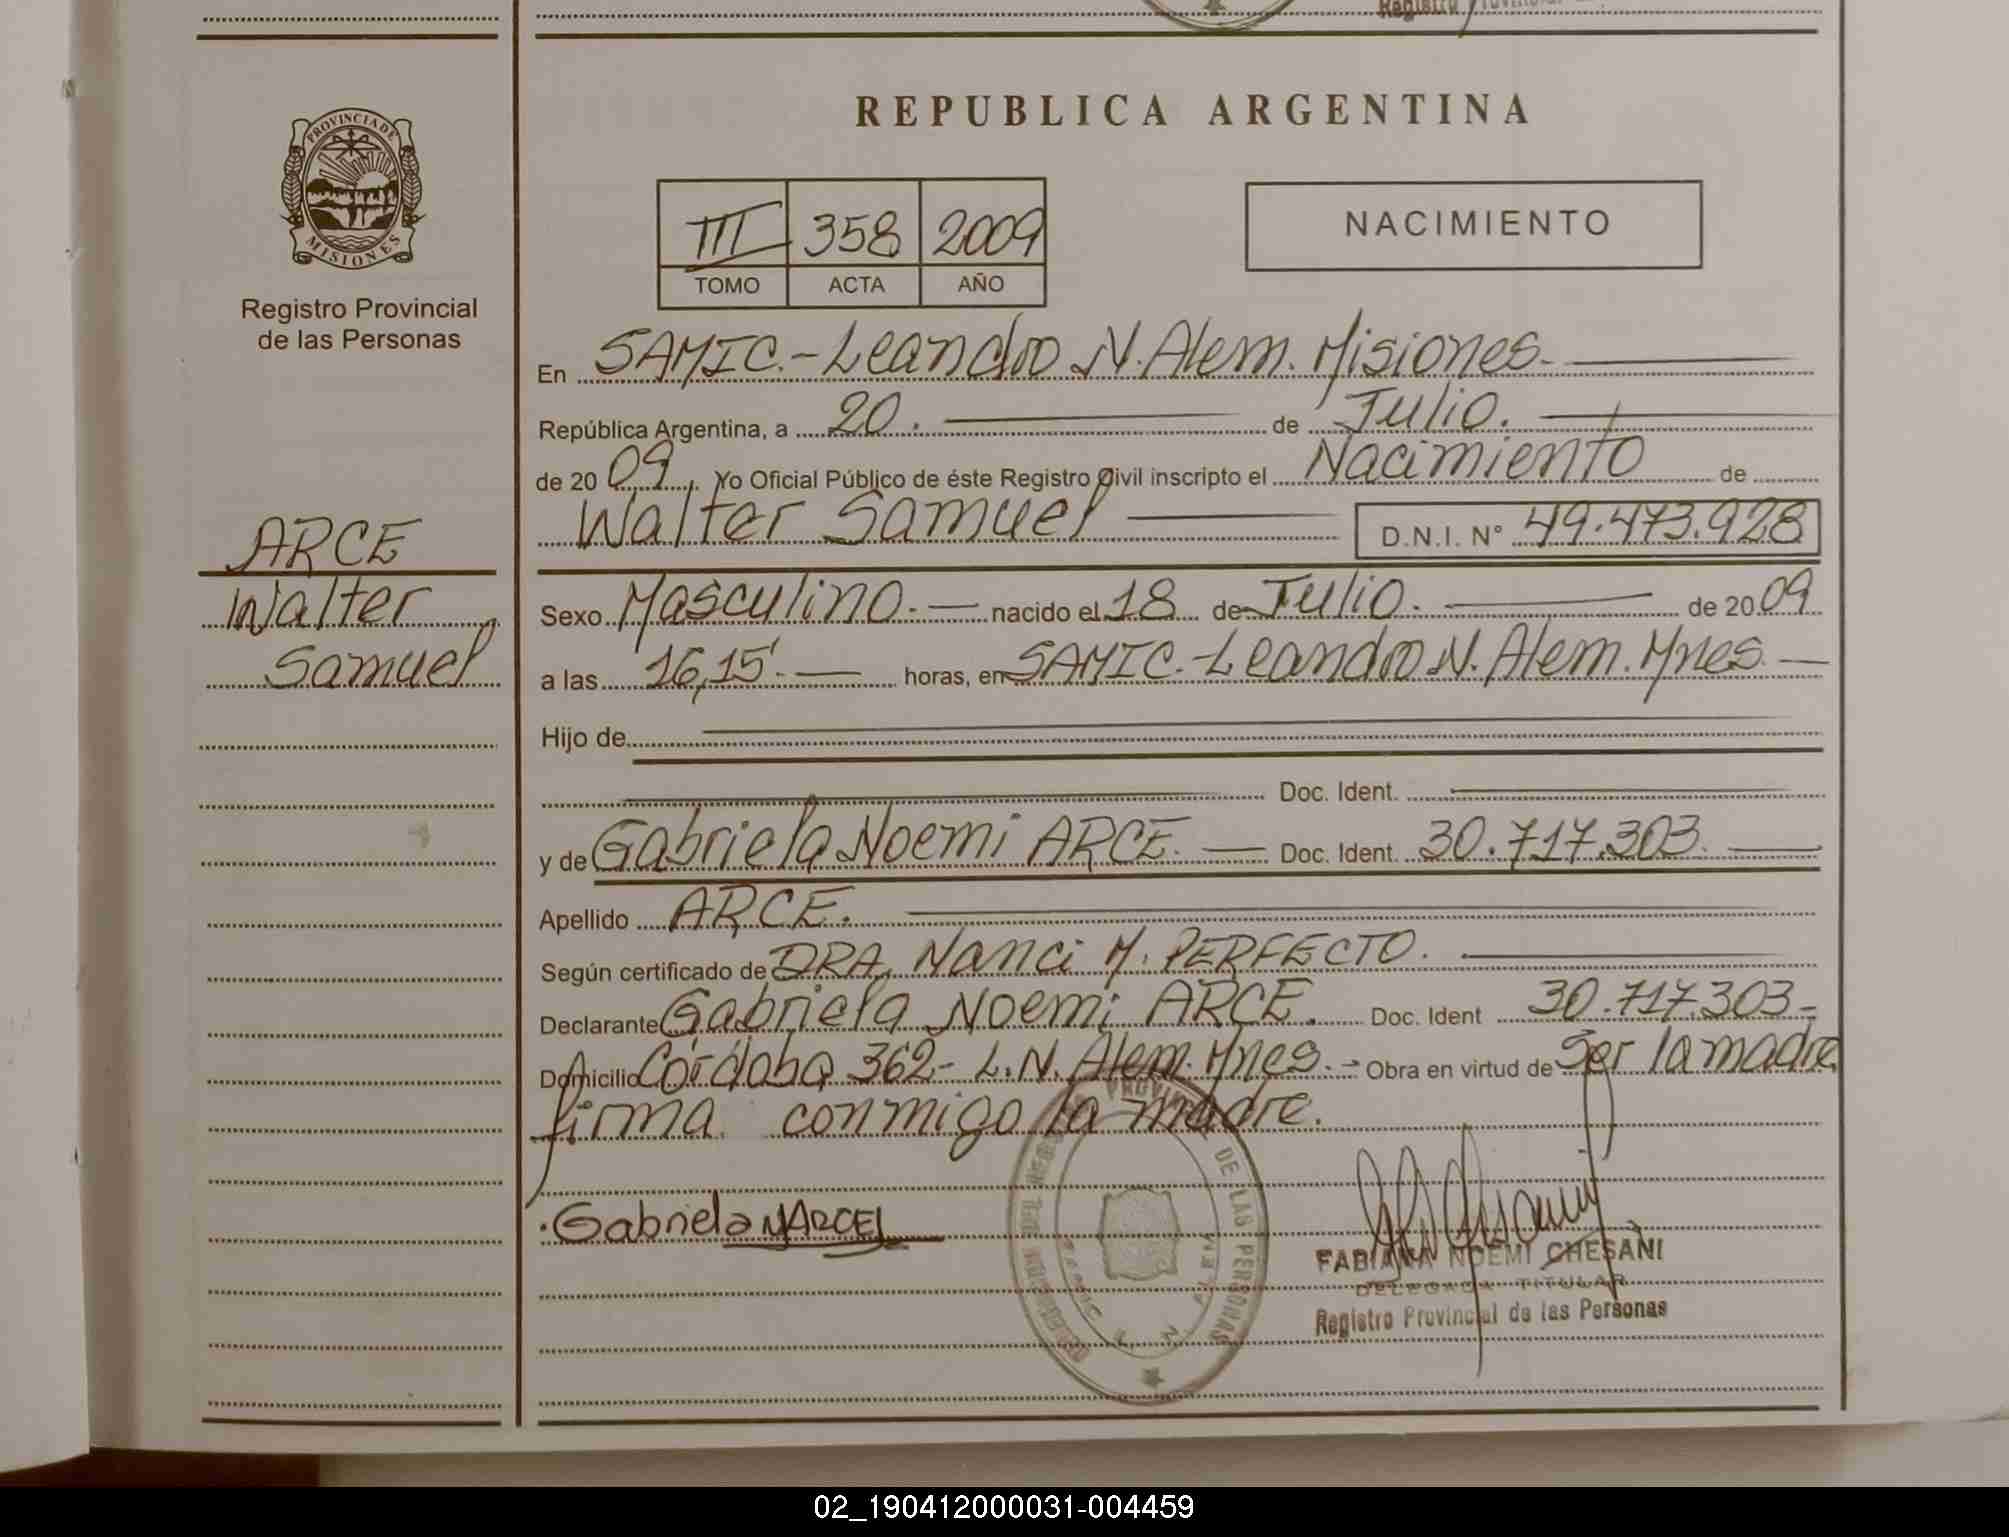 REPUBLICA ARGENTINA
PROVINCIA DE
MISIONES
Registro Provincial
de las Personas
III 358 2009
TOMO ACTA AÑO
NACIMIENTO
En SAMIC.- Leandro N. Alem. Misiones.
República Argentina, a 20. de Julio.
de 20 09. Yo Oficial Público de éste Registro Civil inscripto el Nacimiento de
Walter Samuel D.N.I. N° 49.473.928
ARCE
Walter
Samuel
Sexo Masculino. nacido el 18 de Julio. de 20 09
a las 16,15'. horas, en SAMIC.- Leandro N. Alem. Mnes.
Hijo de
Doc. Ident.
y de Gabriela Noemi ARCE. Doc. Ident. 30.717.303.
Apellido ARCE.
Según certificado de DRA. Nanci M. PERFECTO.
Declarante Gabriela Noemi ARCE. Doc. Ident 30.717.303-
Domicilio Córdoba 362- L.N. Alem. Mnes. - Obra en virtud de Ser la madre
firma conmigo la madre.
Gabriela N ARCE
DE LAS PERSONAS
FABIANA NOEMI CHESANI
DELEGADA TITULAR
Registro Provincial de las Personas
02_190412000031-004459